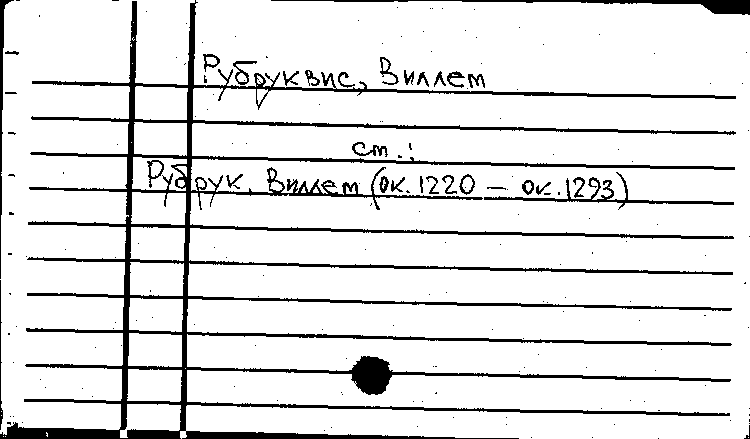 Рубруквис, Виллем
ст.:
Рубрук, Виллем (ок.1220 – ок.1293)